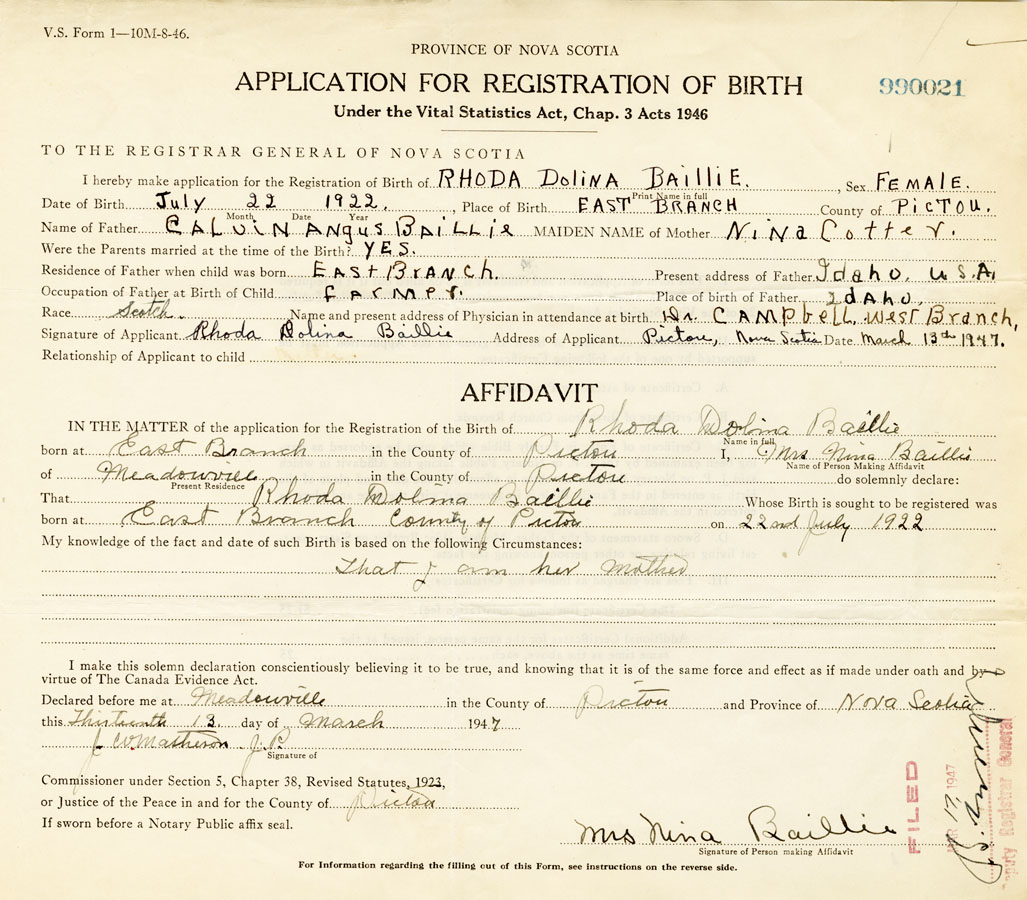 V.S. Form 1—10M-8-46.
PROVINCE OF NOVA SCOTIA
APPLICATION FOR REGISTRATION OF BIRTH
990021
Under the Vital Statistics Act, Chap. 3 Acts 1946
TO THE REGISTRAR GENERAL OF NOVA SCOTIA
I hereby make application for the Registration of Birth of RHODA DOLINA BAILLIE. , Sex FEMALE.
Print Name in full
Date of Birth July 22 1922. , Place of Birth EAST BRANCH County of PICTOU.
Month Date Year
Name of Father CALVIN ANGUS BAILLIE MAIDEN NAME of Mother NINA Cotter.
Were the Parents married at the time of the Birth? YES.
Residence of Father when child was born EAST BRANCH. Present address of Father Idaho, U.S.A.
Occupation of Father at Birth of Child farmer. Place of birth of Father IDAHO.
Race Scotch. Name and present address of Physician in attendance at birth Dr. CAMPbELL, West Branch,
Signature of Applicant Rhoda Dolina Baillie Address of Applicant Pictou, Nova Scotia Date March 13th 1947.
Relationship of Applicant to child
AFFIDAVIT
IN THE MATTER of the application for the Registration of the Birth of Rhoda Dolina Baillie
Name in full
born at East Branch in the County of Pictou I, Mrs Nina Baillie
Name of Person Making Affidavit
of Meadowville in the County of Pictou do solemnly declare:
Present Residence
That Rhoda Dolina Baillie Whose Birth is sought to be registered was
born at East Branch County of Pictou on 22nd July 1922
My knowledge of the fact and date of such Birth is based on the following Circumstances:
That I am her mother
I make this solemn declaration conscientiously believing it to be true, and knowing that it is of the same force and effect as if made under oath and by
virtue of The Canada Evidence Act.
Declared before me at Meadowville in the County of Pictou and Province of Nova Scotia
this Thirteenth 13 day of March 1947
J W Matheson J.P.
Signature of
Commissioner under Section 5, Chapter 38, Revised Statutes, 1923,
or Justice of the Peace in and for the County of Pictou
If sworn before a Notary Public affix seal.
Mrs Nina Baillie
Signature of Person making Affidavit
FILED
MAR 21 1947
Deputy Registrar General
For Information regarding the filling out of this Form, see instructions on the reverse side.